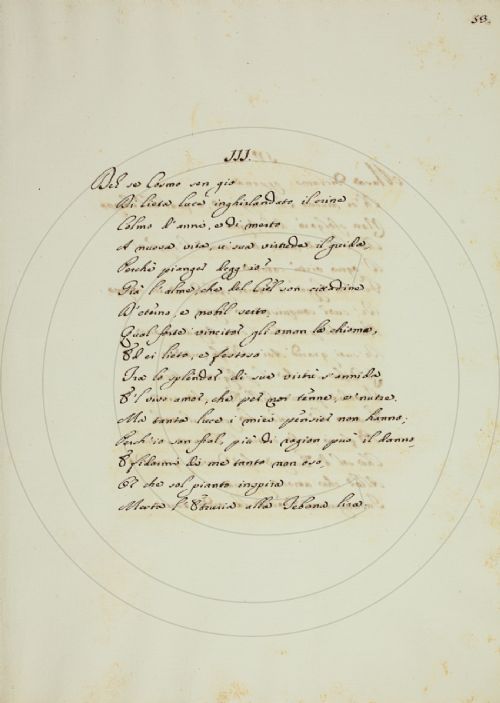 53.
III.
Deh se Cosmo sen gio
Di lieta luce inghirlandato il crine
Colmo d'anni, e di merto
A nuova vita, u' sua virtude il guida,
Perchè pianger degg'io?
Già l'alme, che del Ciel son cittadine
D'eterno, e nobil serto,
Qual forte vincitor gli ornan la chioma,
Ed ei lieto, e festoso
Tra lo splendor di sue virtù s'annida
E'l vivo amor, che per noi tenne, e' nutre.
Ma tanta luce i miei pensier non hanno;
Perch'io son fral, più di ragion può il danno,
E fidarmi di me tanto non oso,
Sì che sol pianto inspira
Mesta l'Etruria alla Tebana lira.